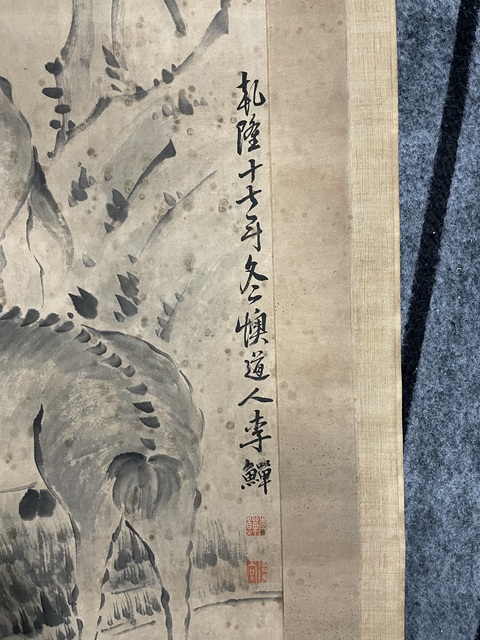 乾隆十七年冬懊道人李鱓